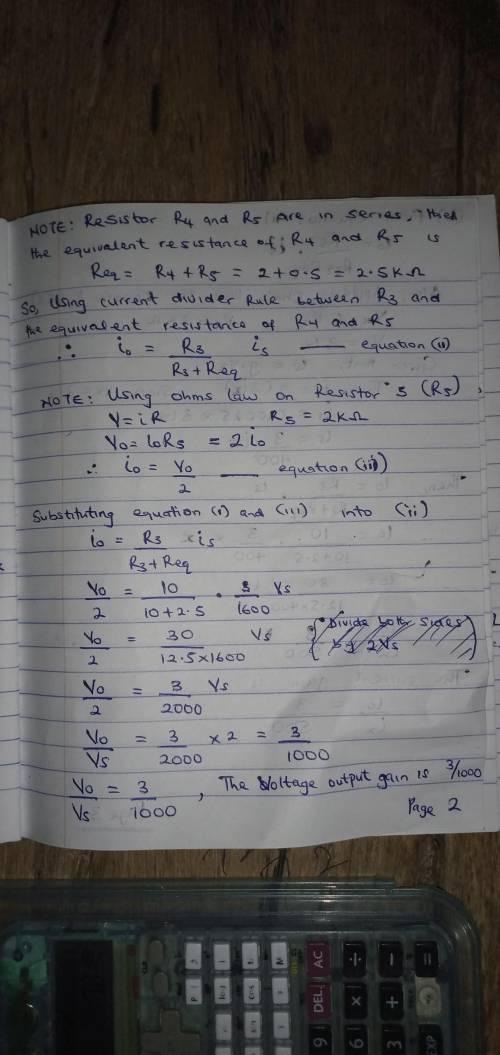 NOTE: Resistor R4 and R5 are in series, then
the equivalent resistance of, R4 and R5 is
Req = R4 + R5 = 2 + 0.5 = 2.5KΩ
So, Using current divider Rule between R3 and
the equivalent resistance of R4 and R5
∴ io = R3 / (R3 + Req) is — equation (ii)
NOTE: Using ohms law on Resistor 5 (R5),
V = iR R5 = 2KΩ
Vo = ioR5 = 2io
∴ io = Vo / 2 — equation (iii)
Substituting equation (i) and (iii) into (ii)
io = R3 / (R3 + Req) × is
Vo / 2 = 10 / (10 + 2.5) . 3 / 1600 Vs
Vo / 2 = 30 / (12.5 × 1600) Vs Divide both sides
by 2Vs
Vo / 2 = 3 / 2000 Vs
Vo / Vs = 3 / 2000 × 2 = 3 / 1000
Vo / Vs = 3 / 1000, The Voltage output gain is 3/1000
Page 2
AC
DEL
÷
-
=
×
+
9
6
3
EXP